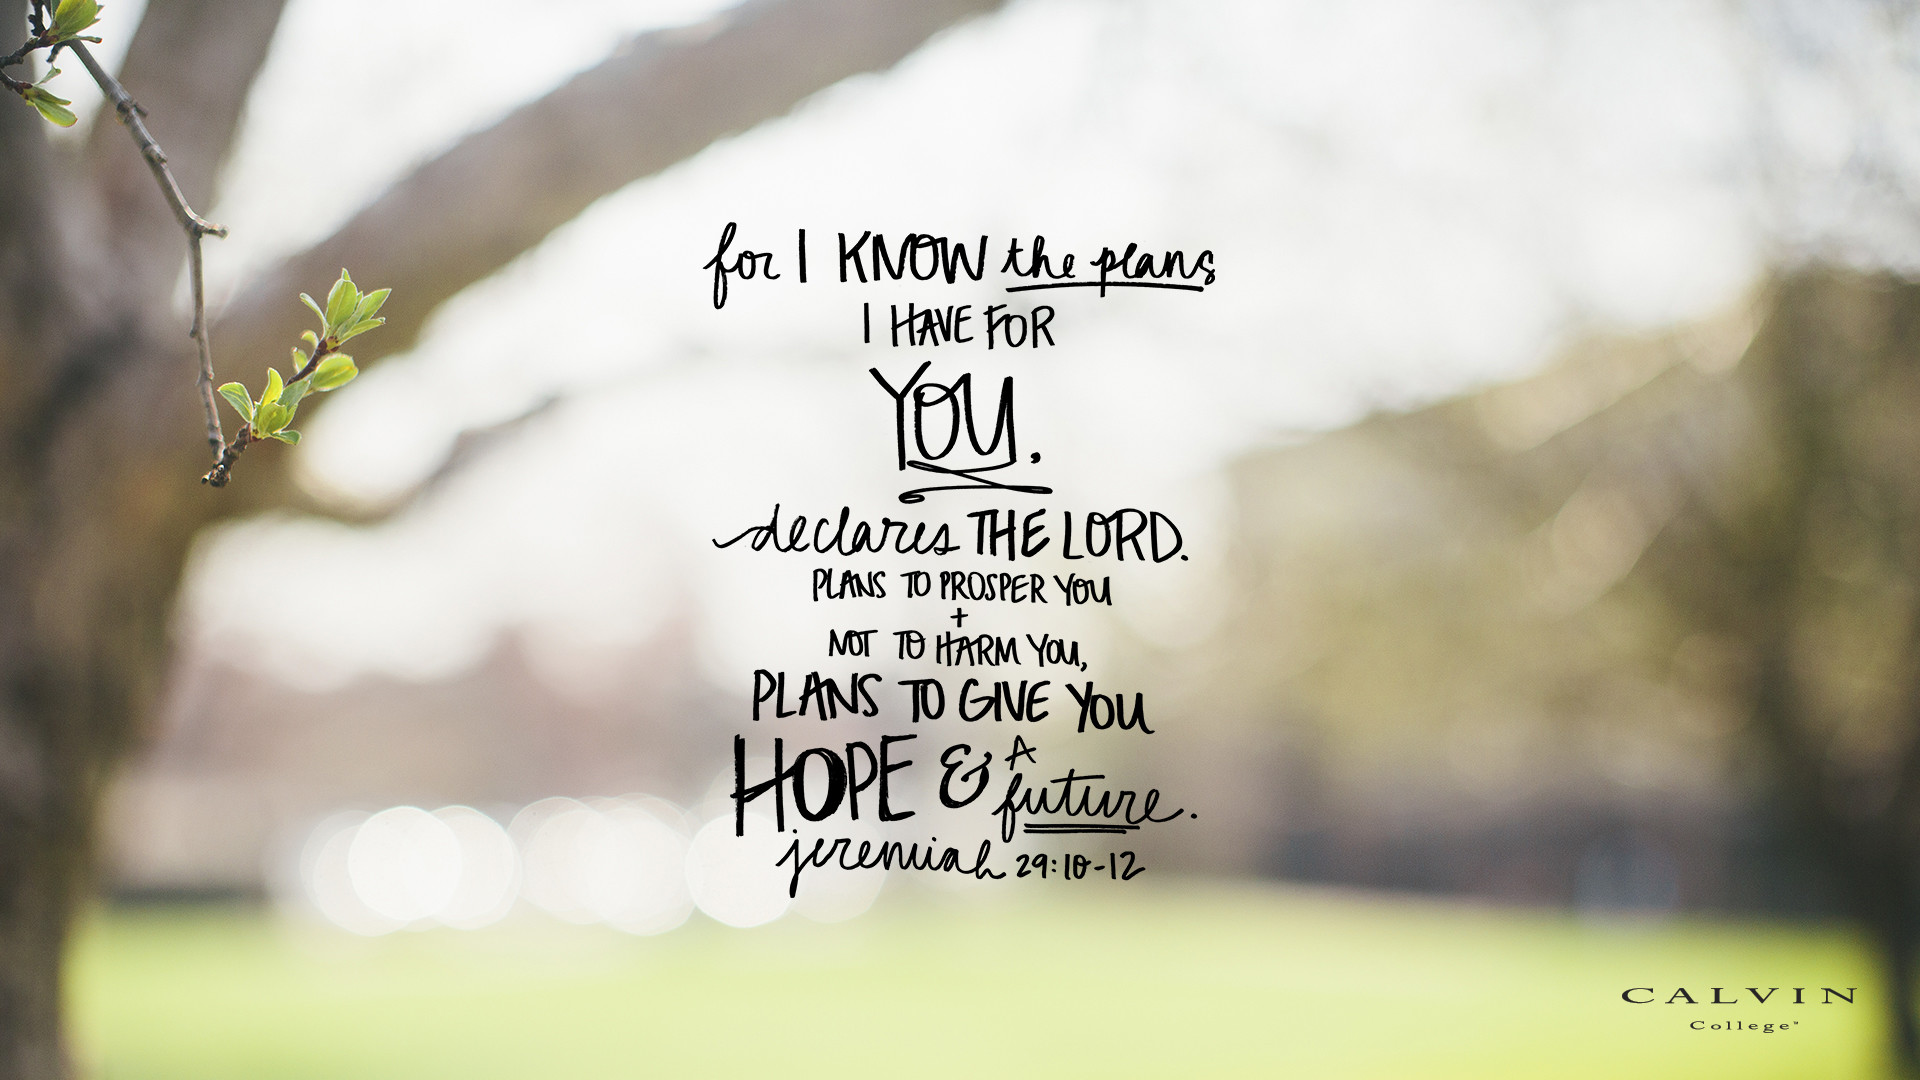 for I KNOW the plans
I HAVE FOR
YOU.
declares THE LORD.
PLANS TO PROSPER YOU
+
NOT TO HARM YOU,
PLANS TO GIVE YOU
HOPE & A future.
jeremiah 29:10-12
CALVIN
College™